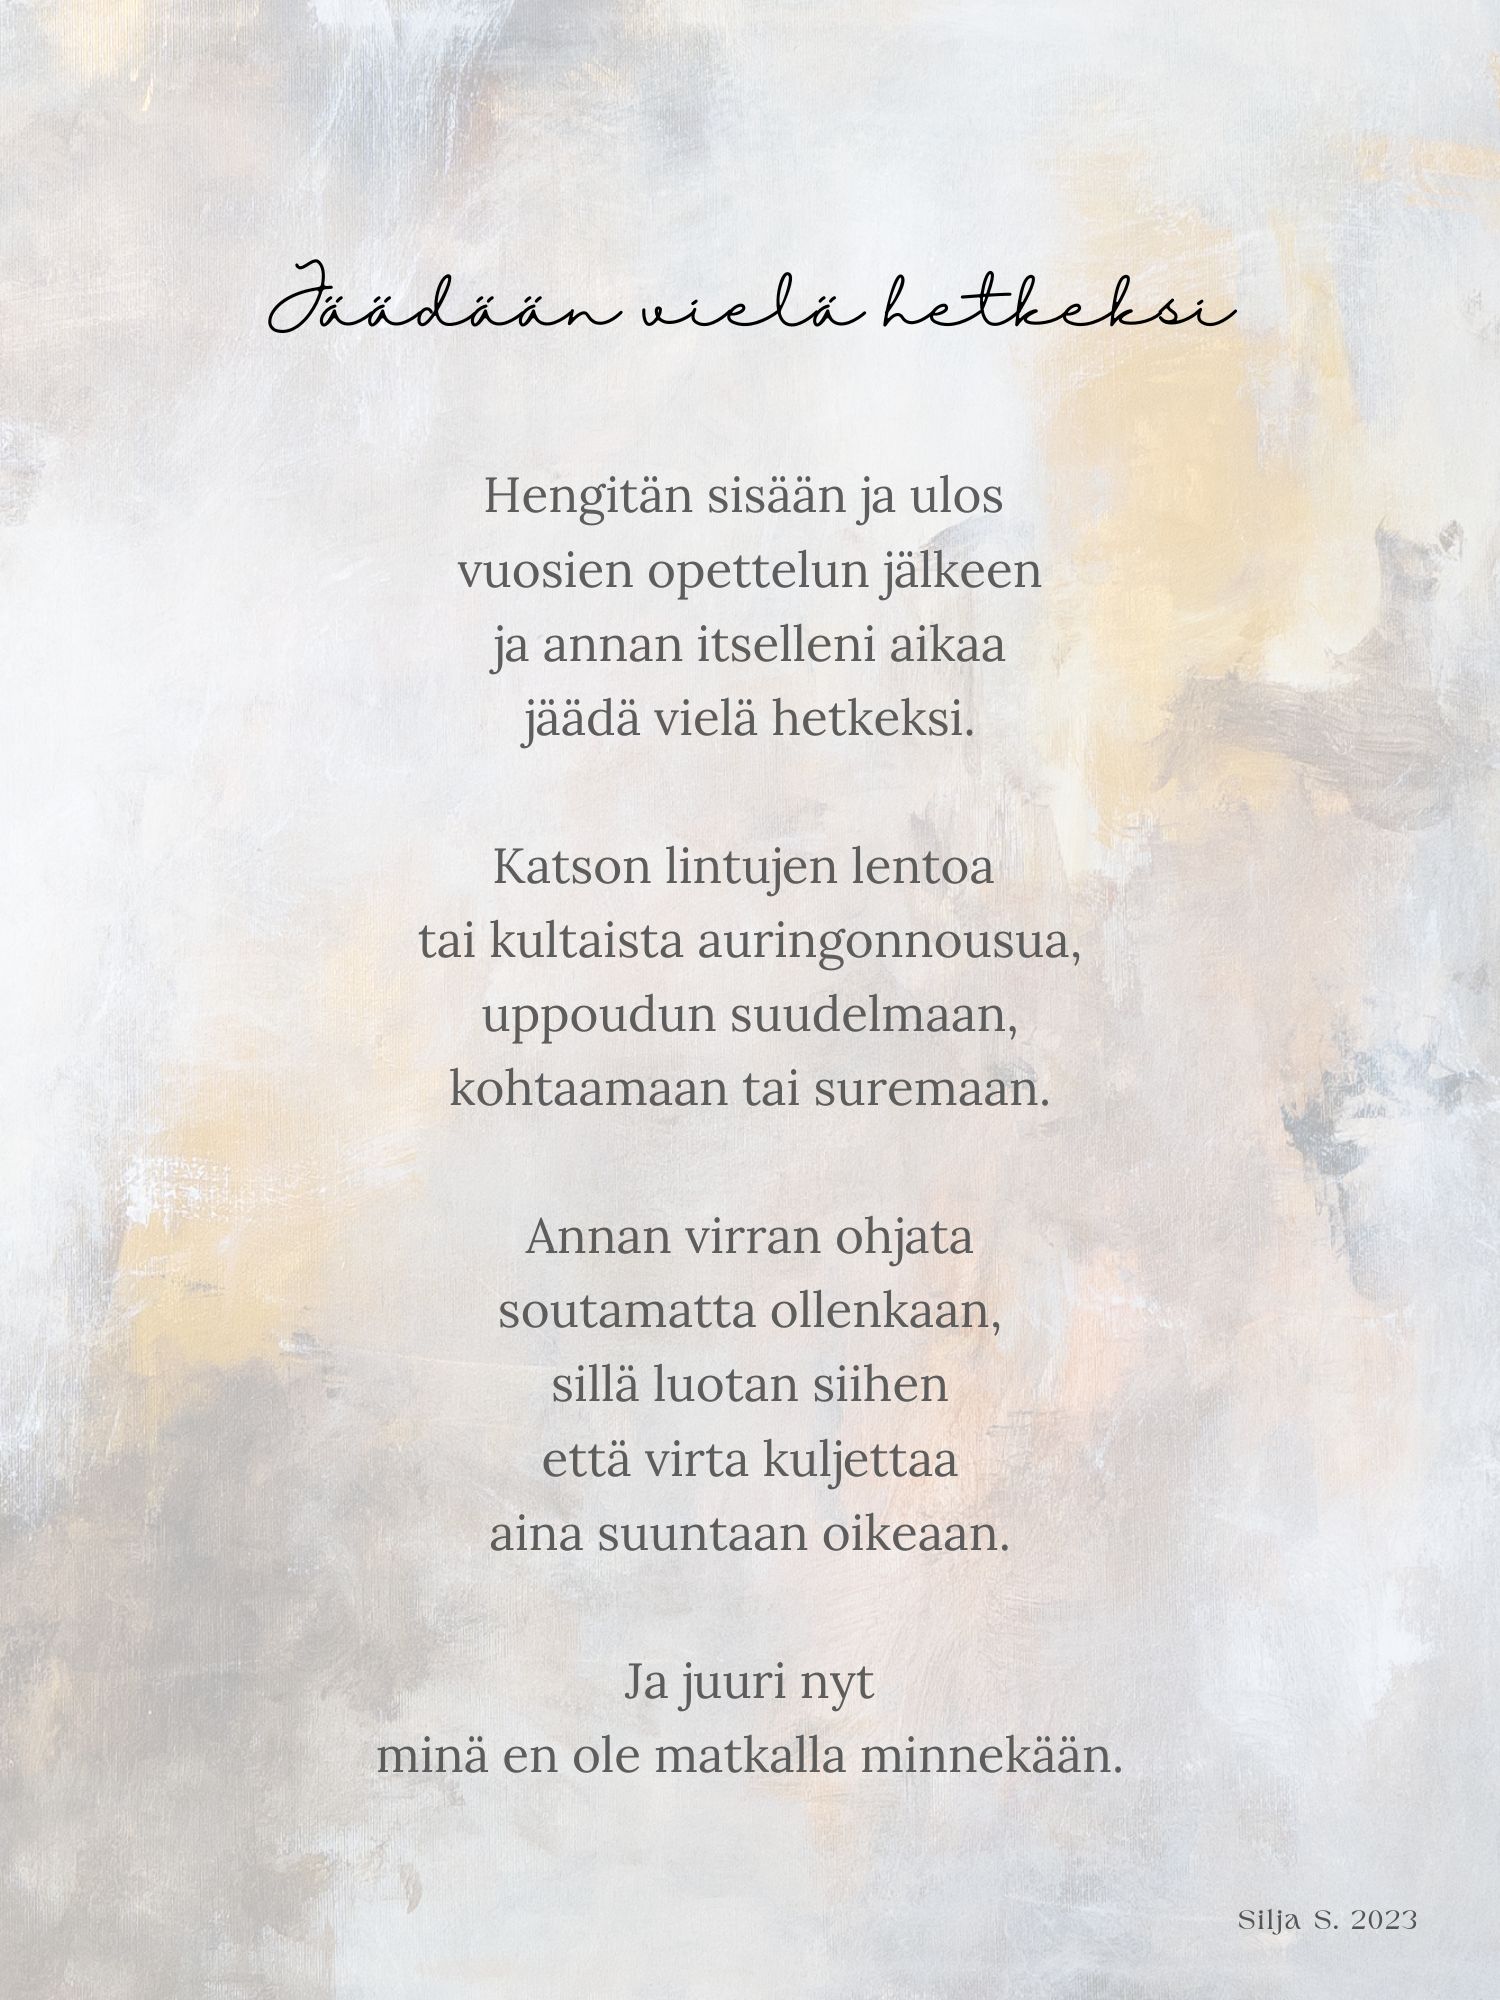 Jäädään vielä hetkeksi
Hengitän sisään ja ulos
vuosien opettelun jälkeen
ja annan itselleni aikaa
jäädä vielä hetkeksi.
Katson lintujen lentoa
tai kultaista auringonnousua,
uppoudun suudelmaan,
kohtaamaan tai suremaan.
Annan virran ohjata
soutamatta ollenkaan,
sillä luotan siihen
että virta kuljettaa
aina suuntaan oikeaan.
Ja juuri nyt
minä en ole matkalla minnekään.
Silja S. 2023